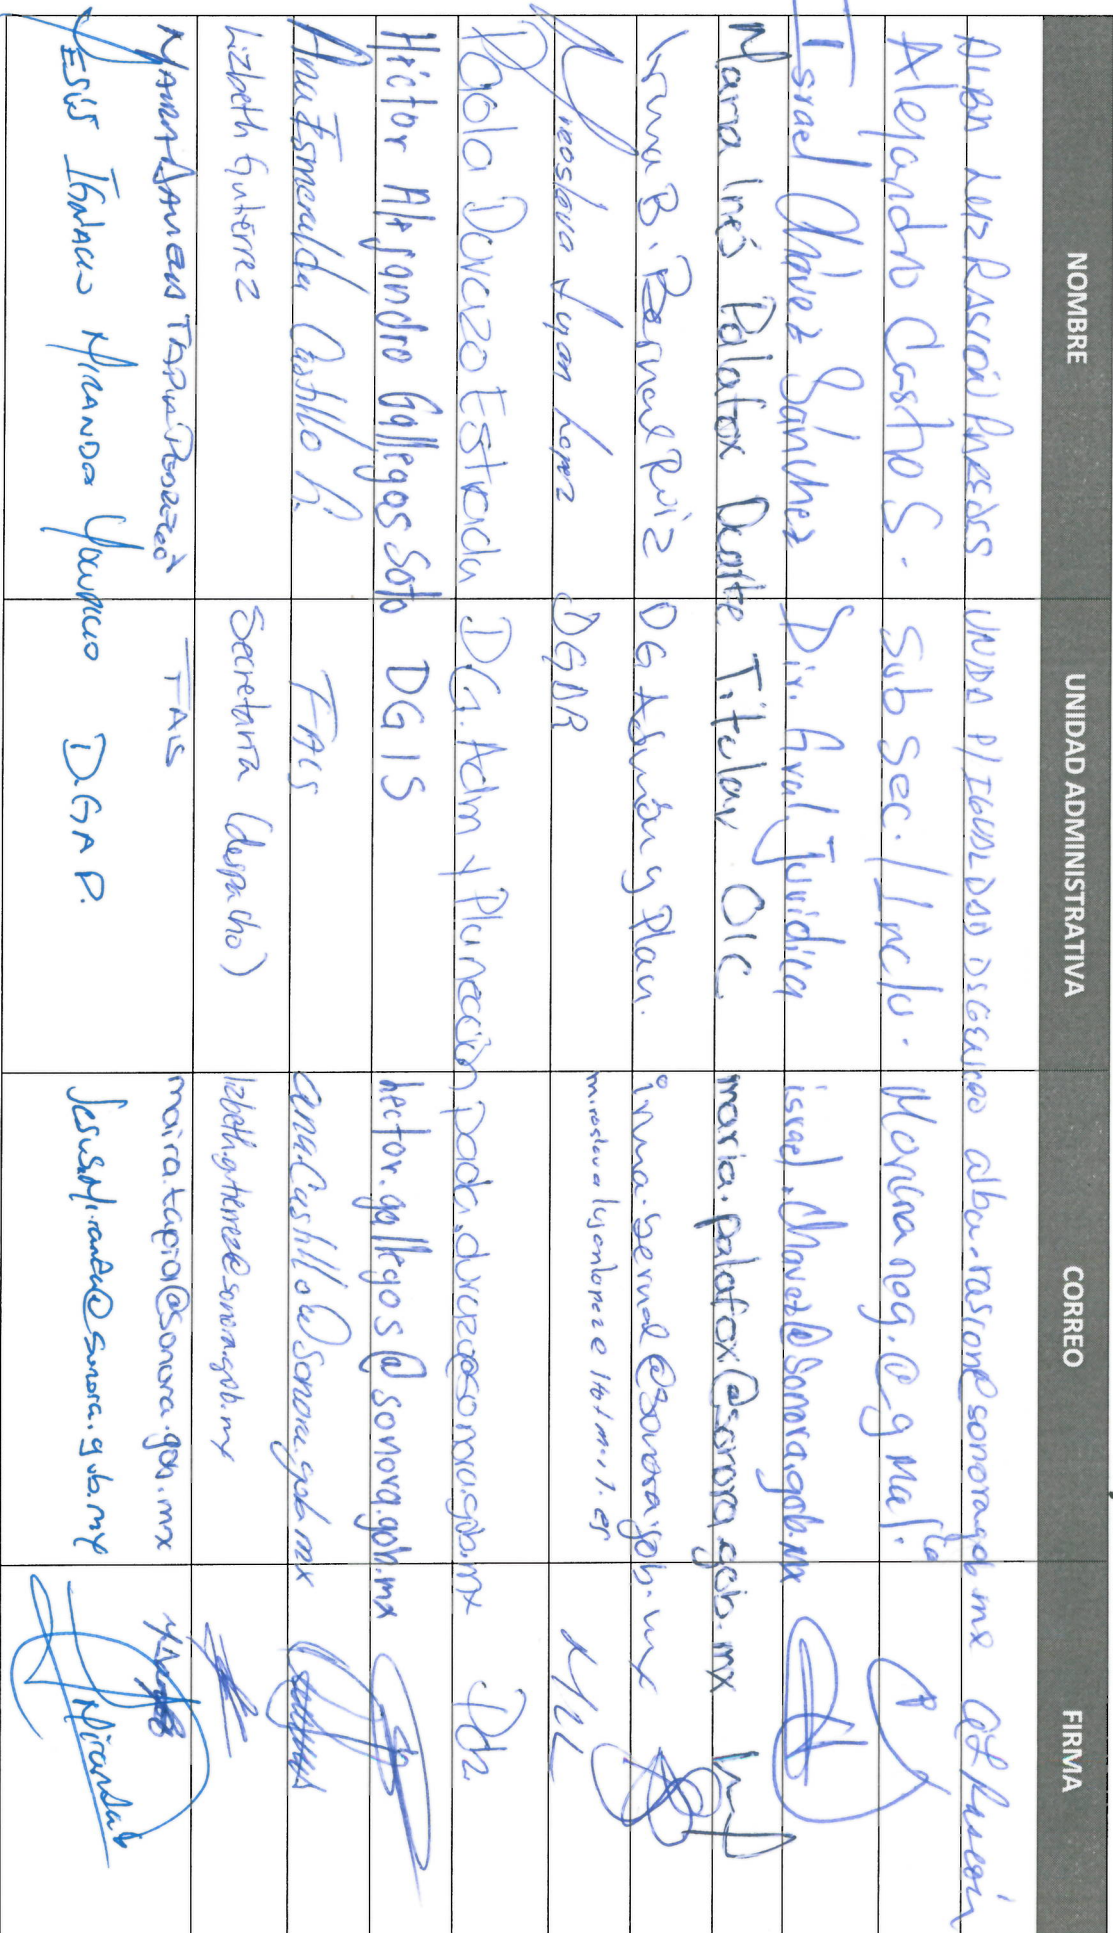 NOMBRE UNIDAD ADMINISTRATIVA CORREO FIRMA
ALBA LUZ RASCÓN PAREDES UNDD P/IGUALDAD DSGENERO alba.rascon@sonora.gob.mx
Alejandro Castro S. Sub Sec. / Inclu.
Israel Chávez Sánchez Dir. Gral. Jurídica israel.chavez@sonora.gob.mx
Maria Inés Palafox Duarte Titular OIC maria.palafox@sonora.gob.mx
Irma B. Bernal Ruiz DG Admón y Plan. irma.bernal@sonora.gob.mx
Miroslava Lyon Lopez DGDR miroslavalyonlopez@hotmail.es MLL
Paola Darazo Estrada DG. Adm y Planeación
Héctor Alejandro Gallegos Soto DGIS hector.gallegos@sonora.gob.mx
Ana Esmeralda Castillo G. FAIS ana.castillo@sonora.gob.mx
Lizbeth Gutiérrez Secretaria (despacho) lizbeth.gutierrez@sonora.gob.mx
FAIS maira.tapia@sonora.gob.mx
JESÚS IGNACIO MIRANDA DGAP. Jesus.Miranda@sonora.gob.mx Miranda